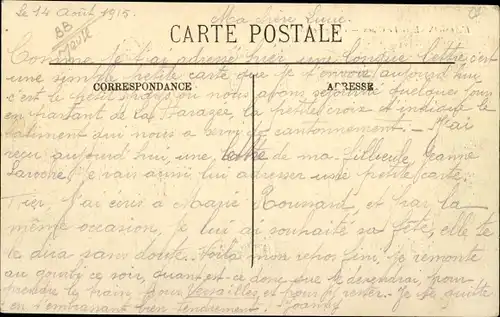 Le 14 Août 1915. Ma chère Lucie.
CARTE POSTALE
Comme je t'ai adressé hier une longue lettre, c'est
une simple petite carte que je t'envoie aujourd'hui
c'est le petit où nous avons séjourné quelques jours
CORRESPONDANCE ADRESSE
en partant de la la petite croix indique le
bâtiment qui nous a servi de cantonnement - J'ai
reçu aujourd'hui une lettre de ma filleule, Jeanne
je vais aussi lui adresser une petite carte.
Hier, j'ai écrit à Marie et par la
même occasion, je lui ai souhaité sa fête, elle te
le dira sans doute. Voilà mon repos fini, je remonte
au ce soir, quant est-ce donc que je descendrai, pour
prendre le train pour Versailles et pour y rester. Je te quitte
en t'embrassant bien tendrement.